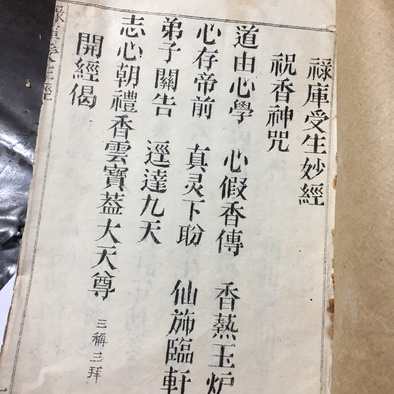 祿庫受生妙經
祝香神咒
道由心學 心假香傳 香爇玉炉
心存帝前 真灵下盼 仙斾臨軒
弟子關告 逕達九天
志心朝禮香雲寶蓋大天尊 三稱三拜
開經偈